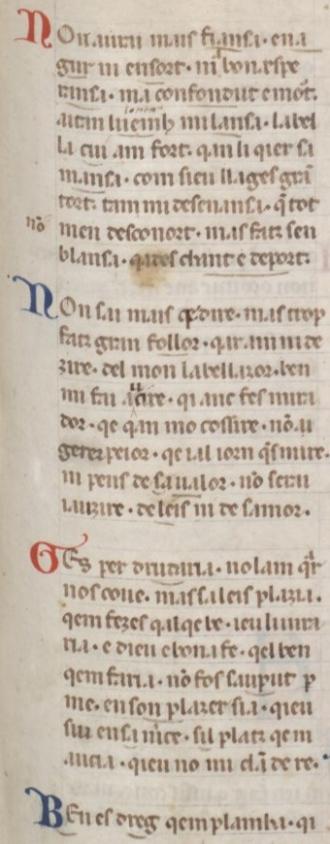 NOn aura mais fiansa · en a
gur ni en sort · ni bon espe
ransa · ma confondut e mort.
la bel
la cui am fort · quan li quer sa
mansa · com sieu llages gran
tort · tan mi desenansa · q̃ tot
nō men desconort · mas fatz sen
blansa · chant e deport.
NOn sai mais qe dire · mas trop
fatz gran follor · qar am ni de
zire · del mon la bellazor · ben
mi fai · qi anc fes mira
dor · qe qan mo cossire · nō · u
peior · qe ial iorn q̃s mire ·
ni pens de sa ualor · nō serai
iauzire · de leis ni de samor ·
GEs per drudaria · no lam qar
nos coue · mas sa leis plazia ·
qem fezes qalqe be · ieu li iura
ria · e dieu e bona fe · qel ben
qem faria · nō fos sauput p
me · en son plazer sia · qieu
sui en sa m̃ce · sil platz qem
aucia · qieu no mi clā de re ·
BEn es dreg qem planha · qi